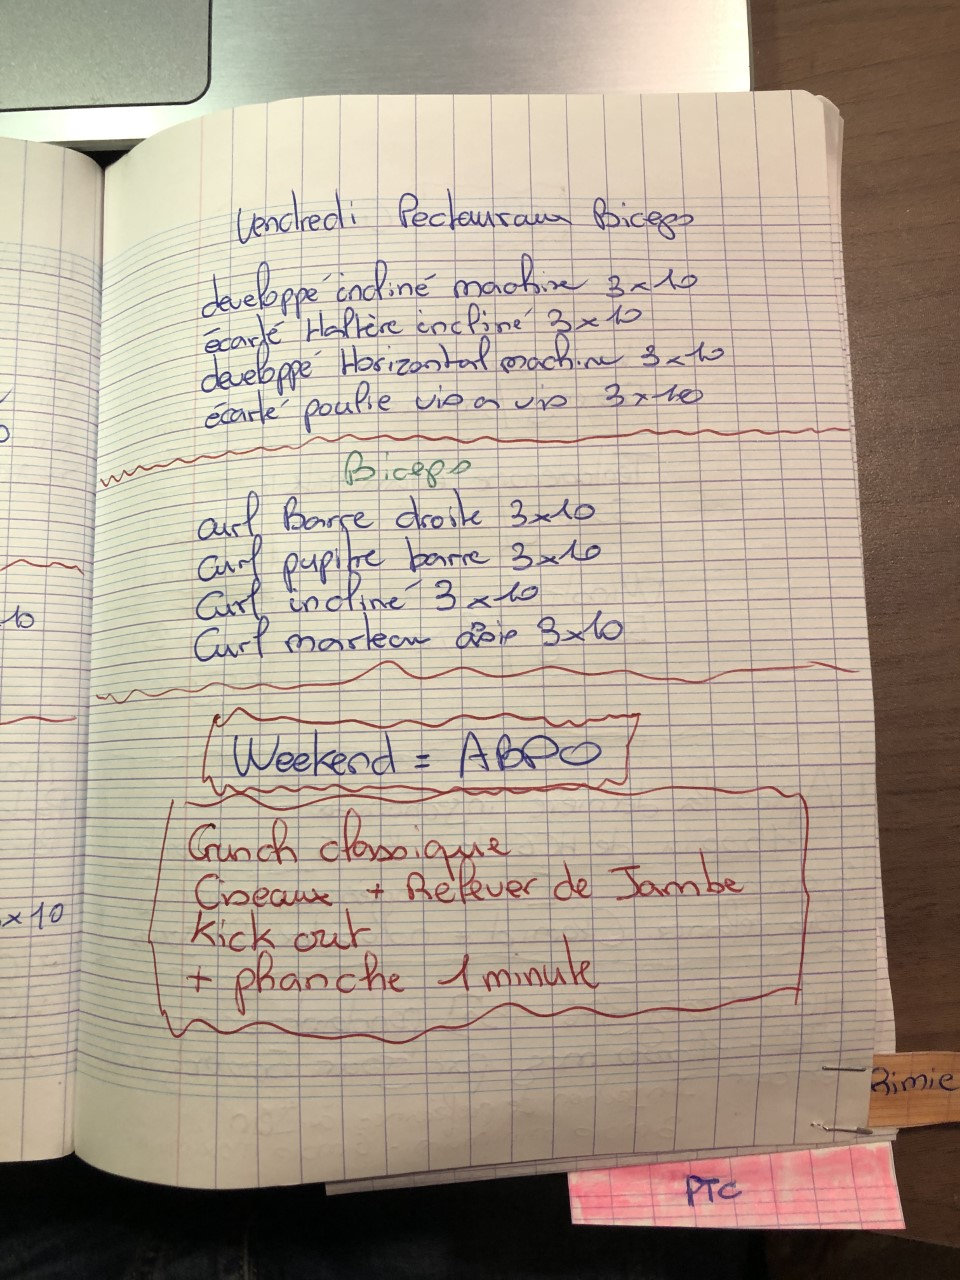 Vendredi Pectauraux Biceps
developpé incliné machine 3x10
écarté Haltère incliné 3x10
developpé Horizontal machine 3x10
écarté poulie vis a vis 3x10
Biceps
curl Barre droite 3x10
Curl pupitre barre 3x10
Curl incliné 3x10
Curl marteau assis 3x10
Weekend = ABDO
Crunch classique
Ciseaux + Relever de Jambe
Kick out
+ planche 1 minute
10
x10
PTC